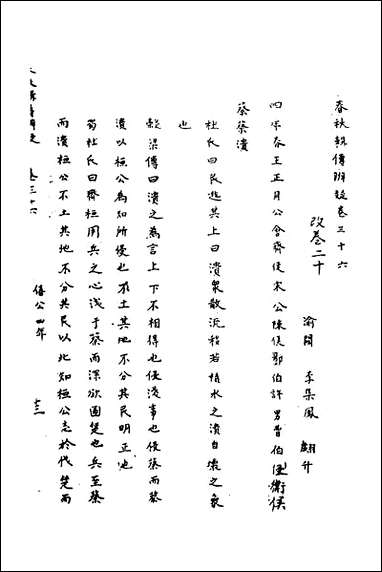 春秋輯傳辨疑卷三十六
改卷二十
渝關 李集鳳 翽升
四年春王正月公會齊侯宋公陳侯衛侯鄭伯許男曹伯侵
蔡蔡潰
杜氏曰民逃其上曰潰眾散流移若積水之潰自壞之象
也
穀梁傳曰潰之為言上下不相得也侵淺事也侵蔡而蔡
潰以桓公為知所侵也不土其地不分其民明正也
荀杜氏曰齊桓用兵之心淺于蔡而深欲圖楚也兵至蔡
而潰桓公不土其地不分其民以此知桓公志於伐楚而
卷三十六
僖公四年
十三